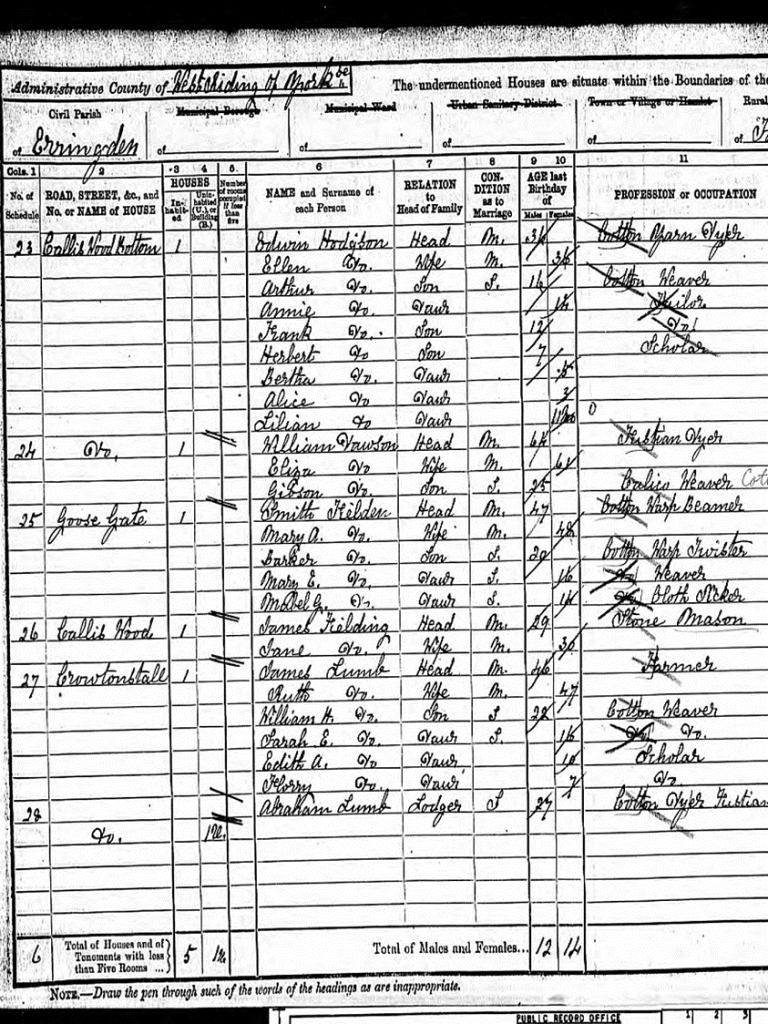 Administrative County of West Riding of York The undermentioned Houses are situate within the Boundaries of the
Civil Parish Municipal Borough Municipal Ward Urban Sanitary District Town or Village or Hamlet Rural
of Erringden of of of of of
Cols. 1 2 3 4 5. 6 7 8 9 10 11
No. of Schedule ROAD, STREET, &c., and No. or NAME of HOUSE HOUSES In-habit-ed Unin-habited (U.), or Building (B.) Number of rooms occupied if less than five NAME and Surname of each Person RELATION to Head of Family CON-DITION as to Marriage AGE last Birthday of Males Females PROFESSION or OCCUPATION
23 Callis Wood Bottom 1 Edwin Hodgson Head M. 36 Cotton Yarn Dyer
Ellen Do. Wife M. 36
Arthur Do. Son S. 16 Cotton Weaver
Annie Do. Daur 14 Tailor
Frank Do. Son 12 Do
Herbert Do Son 7 Scholar
Bertha Do. Daur 5
Alice Do Daur 3
Lilian Do Daur 11mo 0
24 Do. 1 William Dawson Head M. 64 Fustian Dyer
Eliza Do Wife M. 61
Gibson Do Son S. 25 Calico Weaver
25 Goose Gate 1 Smith Fielden Head M. 47 Cotton Warp Beamer
Mary A. Do. Wife M. 48
Barker Do. Son S. 20 Cotton Warp Twister
Mary E. Do. Daur S. 16 Do Weaver
Mabel G. Do. Daur S. 14 Do Cloth
26 Callis Wood 1 James Fielding Head M. 29 Stone Mason
Jane Do. Wife M. 30
27 Crowtonstall 1 James Lumb Head M. 46 Farmer
Ruth Do. Wife M. 47
William H. Do. Son S 22 Cotton Weaver
Sarah E. Do. Daur S. 16 Do Do.
Edith A. Do Daur 10 Scholar
Florry Do. Daur 7 Do.
Abraham Lumb Lodger S 27 Cotton Dyer Fustian
28 Do. 1u.
6 Total of Houses and of Tenements with less than Five Rooms ... 5 1u Total of Males and Females... 12 14
NOTE.—Draw the pen through such of the words of the headings as are inappropriate.
PUBLIC RECORD OFFICE 1 2 3